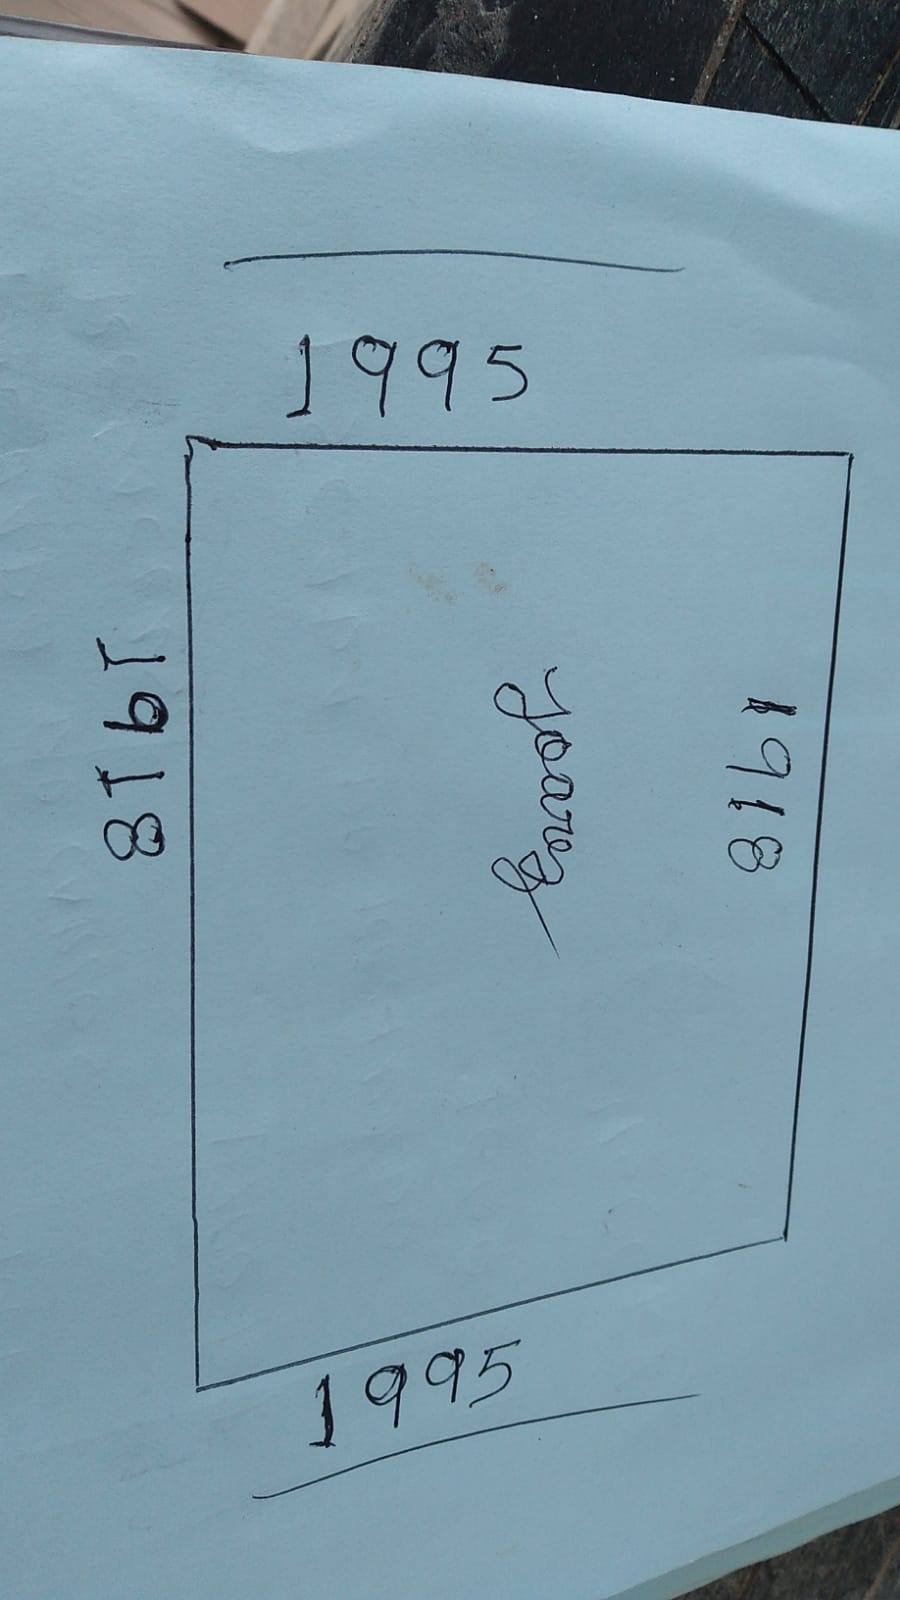 1995
1918
Joarez
1918
1995